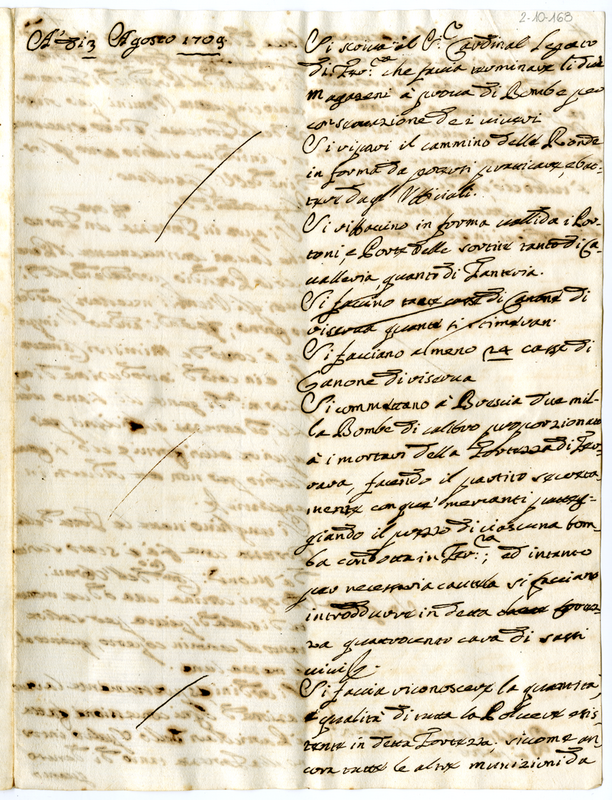 2-10-168
A' di 13 Agosto 1709
Si scriva al Sr. Cardinal Legato
di Ferr.a che faccia terminare li due
Magazeni à prova di Bombe per
conservazione de i viveri
Si ripari il cammino delle Ronde
in forma da potersi praticare, e bat-
tere dagl' Ufficiali.
Si rifaccino in forma valida i Por-
toni, e Porte delle sortite tanto di Ca-
valleria, quanto di Fanteria.
Si faccino tante casse di Canone di
riserva quante si stimeran:
Si facciano almeno 24 casse di
Canone di riserva
Si commettano à Brescia due mil-
la Bombe di calibro proporzionato
à i mortari della Fortezza di Fer-
rara, facendo il partito
mente con que' mercanti
giando il prezzo di ciascuna bom-
ba condotta in Ferr.ra; ed intanto
per necessaria cautela si facciano
introdurre in detta Fortez-
za quattrocento cara di sassi
vivi
Si faccia riconoscere la quantità,
e qualità di tutta la Polvere esis-
tente in detta Fortezza, sicome an-
cora tutte le altre munizioni da